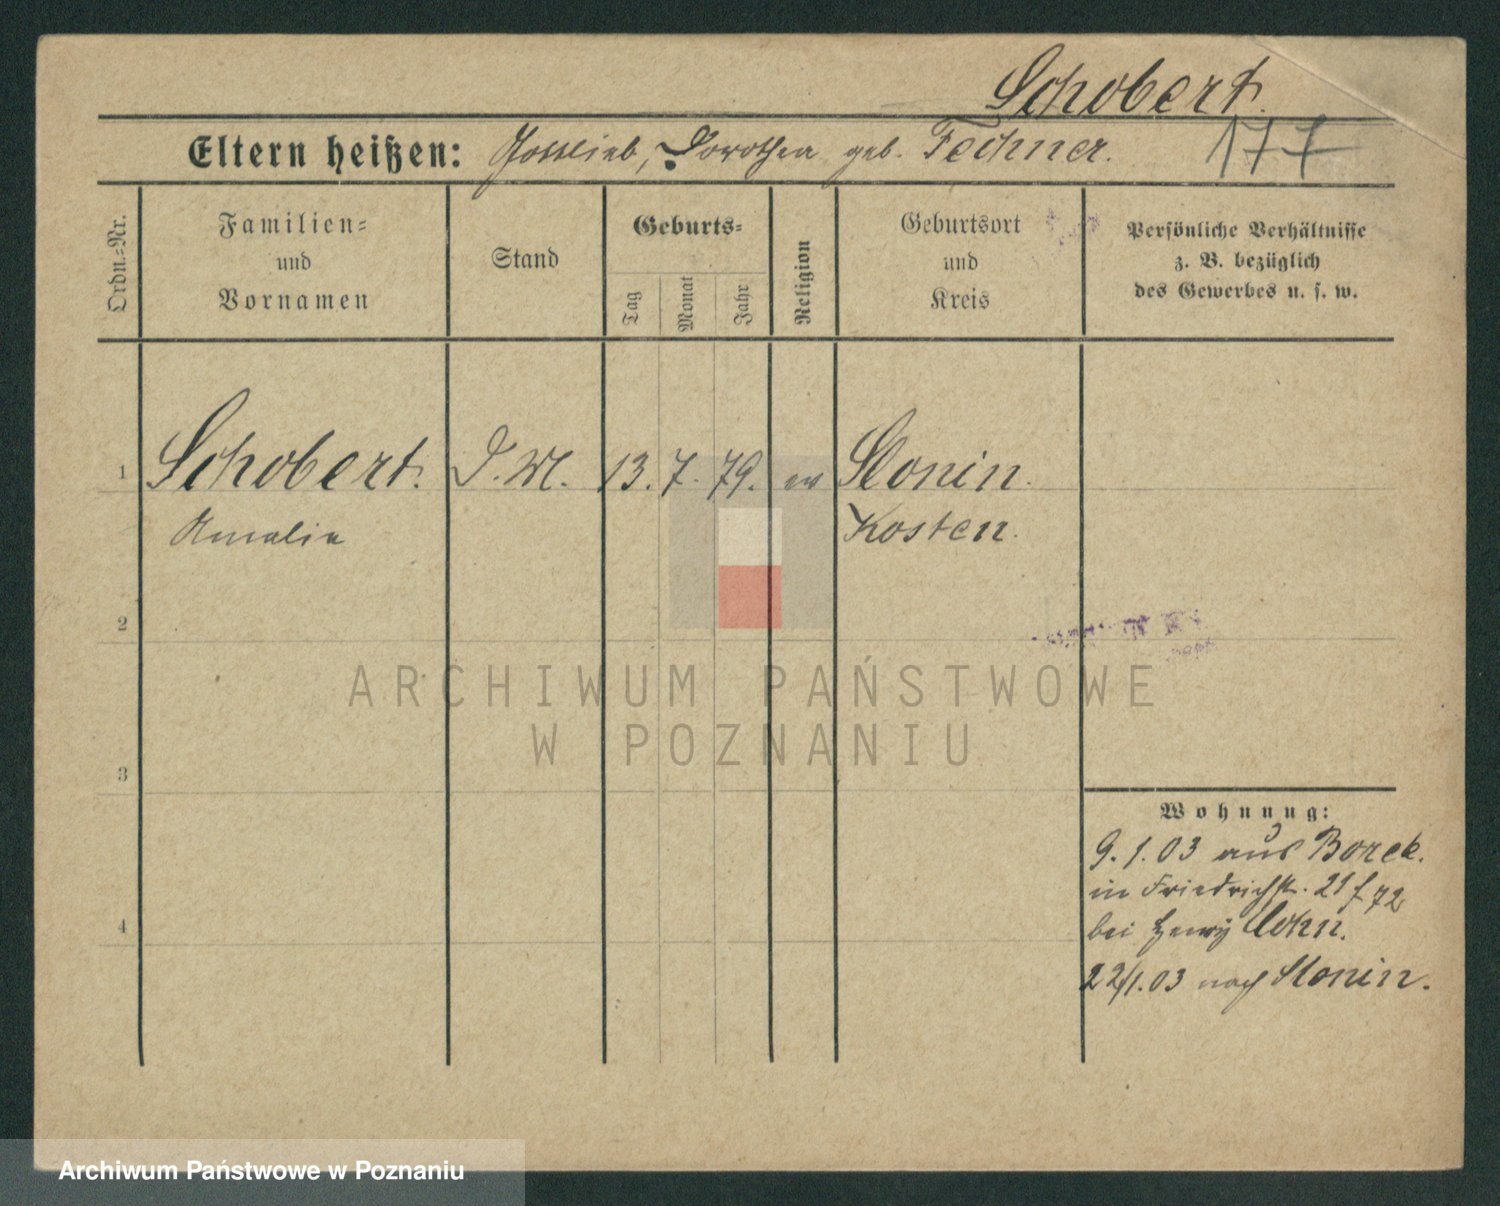 Schobert.
Eltern heißen: Gottlieb, Dorothea geb. Fechner.
177
Ordn.-Nr.
Familien-
und
Vornamen
Stand
Geburts-
Tag
Monat
Jahr
Religion
Geburtsort
und
Kreis
Persönliche Verhältnisse
z. B. bezüglich
des Gewerbes u. s. w.
1 Schobert. D. M. 13. 7. 79. ev Slonin.
Amalie Kosten.
2
ARCHIWUM PAŃSTWOWE
W POZNANIU
3
Wohnung:
9. 1. 03 aus Borek.
in Friedrichst. 21 f 72
4
bei Henry Cohn.
22/1. 03 nach Slonin.
Archiwum Państwowe w Poznaniu